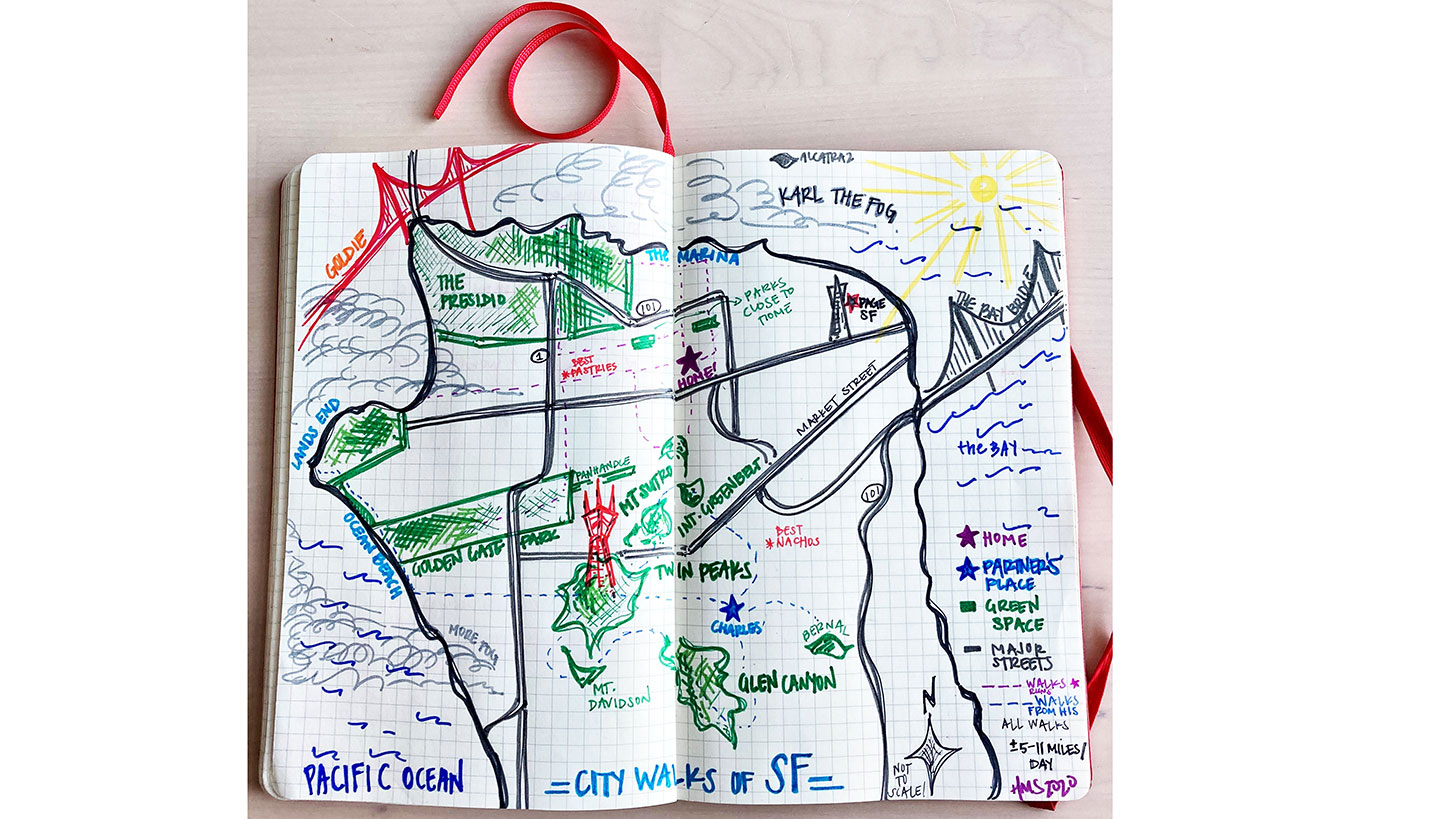 ALCATRAZ
KARL THE FOG
GOLDIE
THE MARINA
THE
PRESIDIO
101
PARKS
CLOSE TO
HOME
PAGE
SF
THE BAY BRIDGE
1
BEST
*PASTRIES
HOME!
MARKET STREET
LANDS END
the BAY
PANHANDLE
MT SUTRO
INT. GREENBELT
101
OCEAN BEACH
GOLDEN GATE PARK
BEST
*NACHOS
TWIN PEAKS
CHARLES'
BERNAL
MORE FOG
MT.
DAVIDSON
GLEN CANYON
HOME
PARTNER'S
PLACE
GREEN
SPACE
MAJOR
STREETS
WALKS
RUNS
WALKS
FROM HIS
ALL WALKS
±5-11 MILES/
DAY
N
NOT
TO
SCALE!
PACIFIC OCEAN
=CITY WALKS OF SF=
HMS 2020